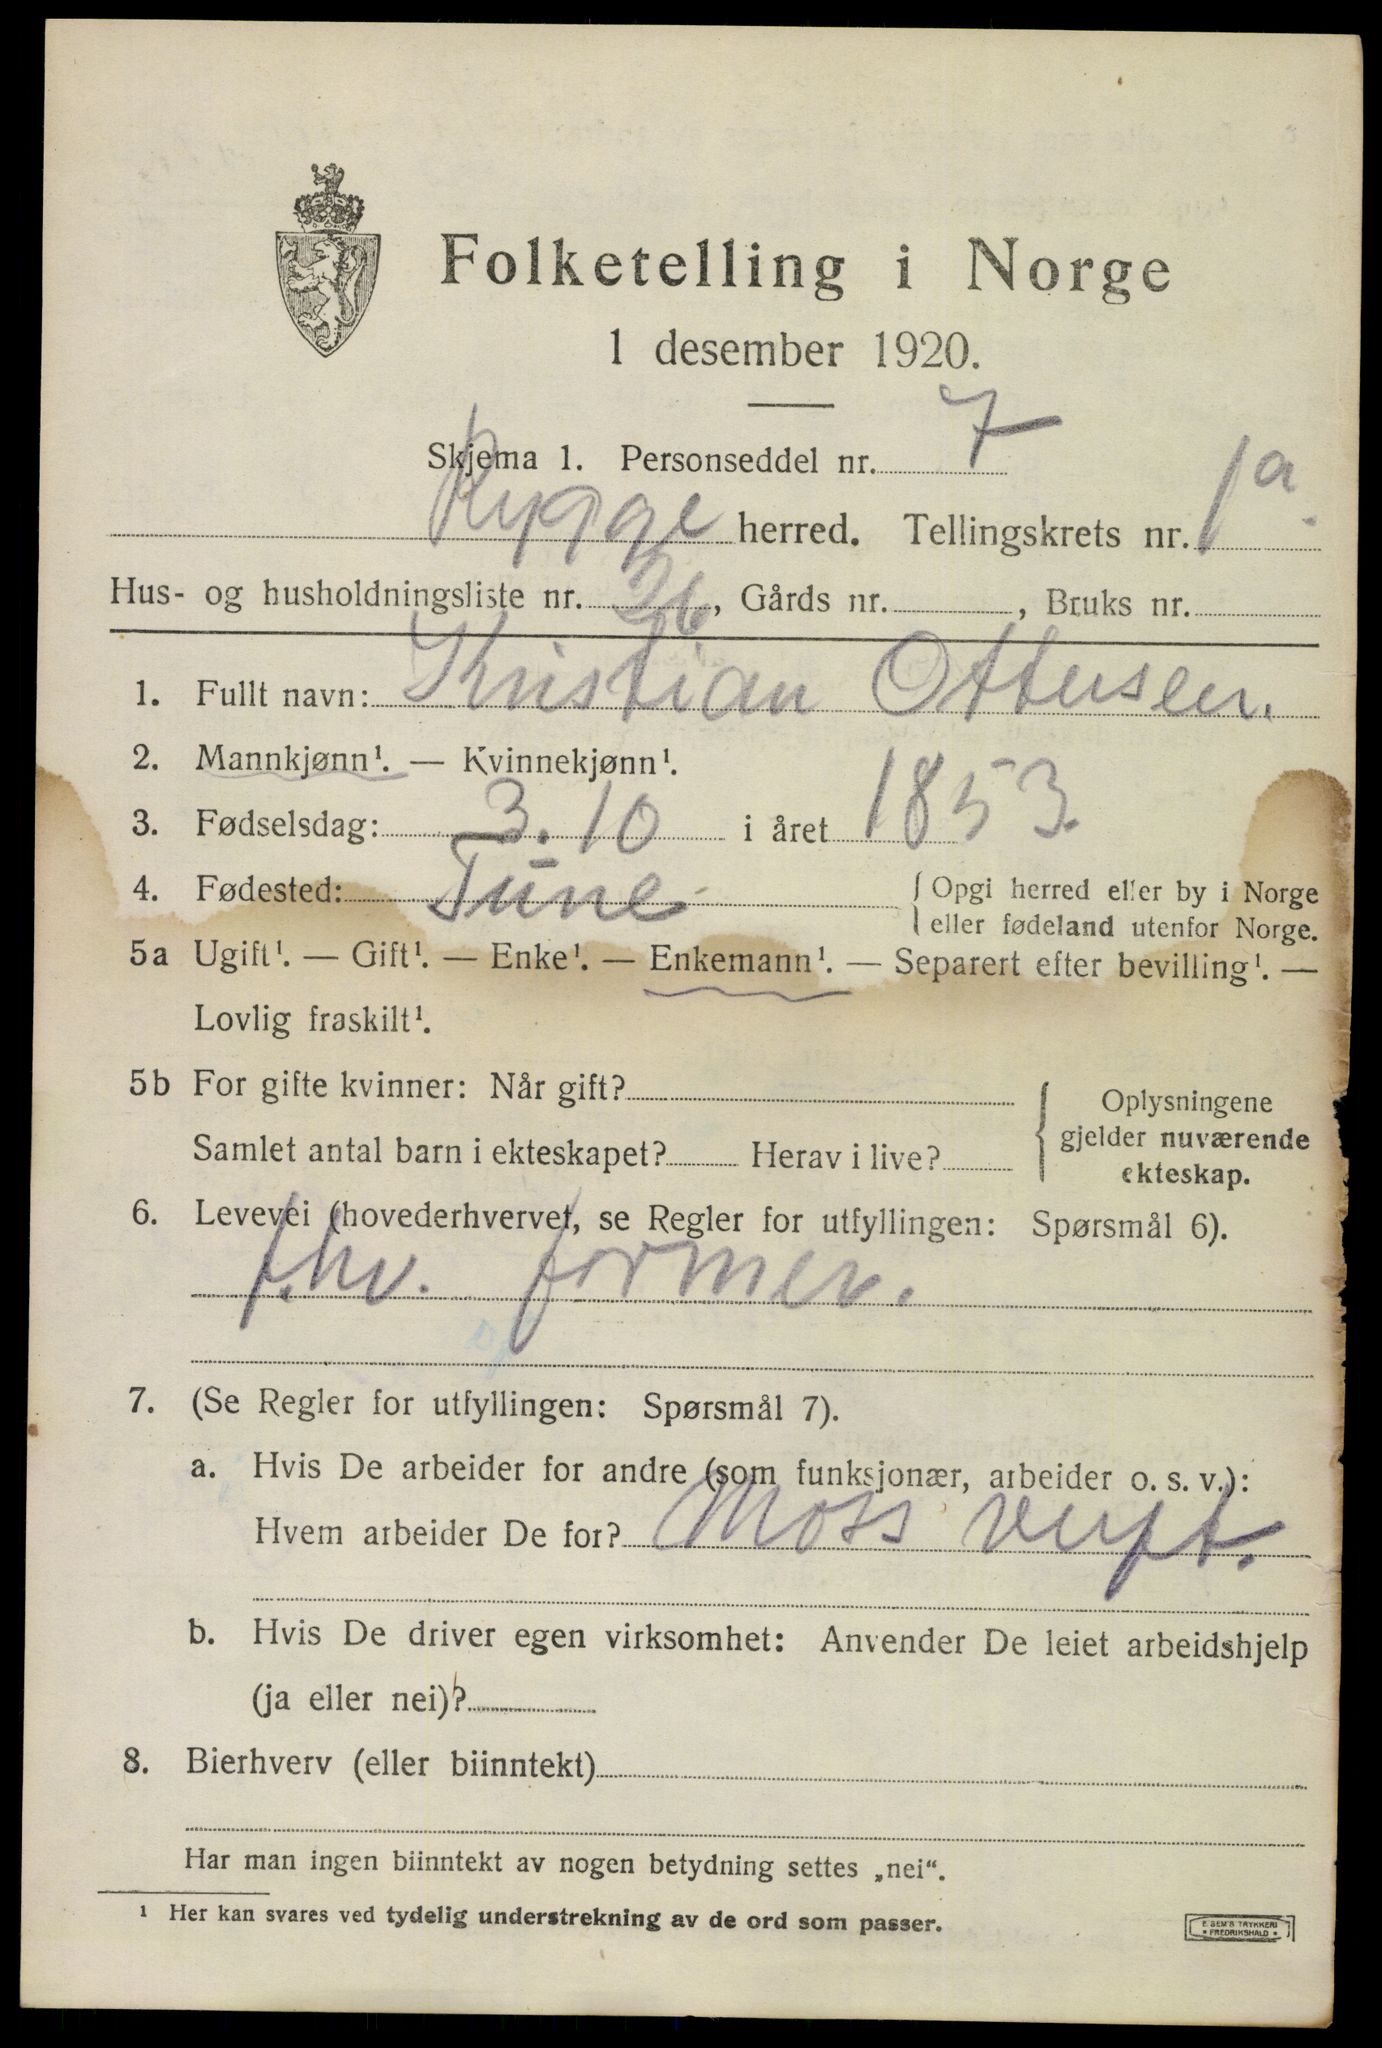 Folketelling i Norge
1 desember 1920.
Skjema 1. Personseddel nr. 7
Rygge herred. Tellingskrets nr. 1a.
Hus- og husholdningsliste nr. 26, Gårds nr. , Bruks nr.
1. Fullt navn: Kristian Ottersen.
2. Mannkjønn¹. — Kvinnekjønn¹.
3. Fødselsdag: 3.10 i året 1853.
4. Fødested: Tune
{ Opgi herred eller by i Norge
eller fødeland utenfor Norge.
5a Ugift¹. — Gift¹. — Enke¹. — Enkemann¹. — Separert efter bevilling¹. —
Lovlig fraskilt¹.
5b For gifte kvinner: Når gift?
Samlet antal barn i ekteskapet? Herav i live?
{ Oplysningene
gjelder nuværende
ekteskap.
6. Levevei (hovederhvervet, se Regler for utfyllingen: Spørsmål 6).
f.hv. former.
7. (Se Regler for utfyllingen: Spørsmål 7).
a. Hvis De arbeider for andre (som funksjonær, arbeider o. s. v.):
Hvem arbeider De for? Moss verft.
b. Hvis De driver egen virksomhet: Anvender De leiet arbeidshjelp
(ja eller nei)?
8. Bierhverv (eller biinntekt)
Har man ingen biinntekt av nogen betydning settes „nei“.
¹ Her kan svares ved tydelig understrekning av de ord som passer.
E. SEM'S TRYKKERI
• FREDRIKSHALD •